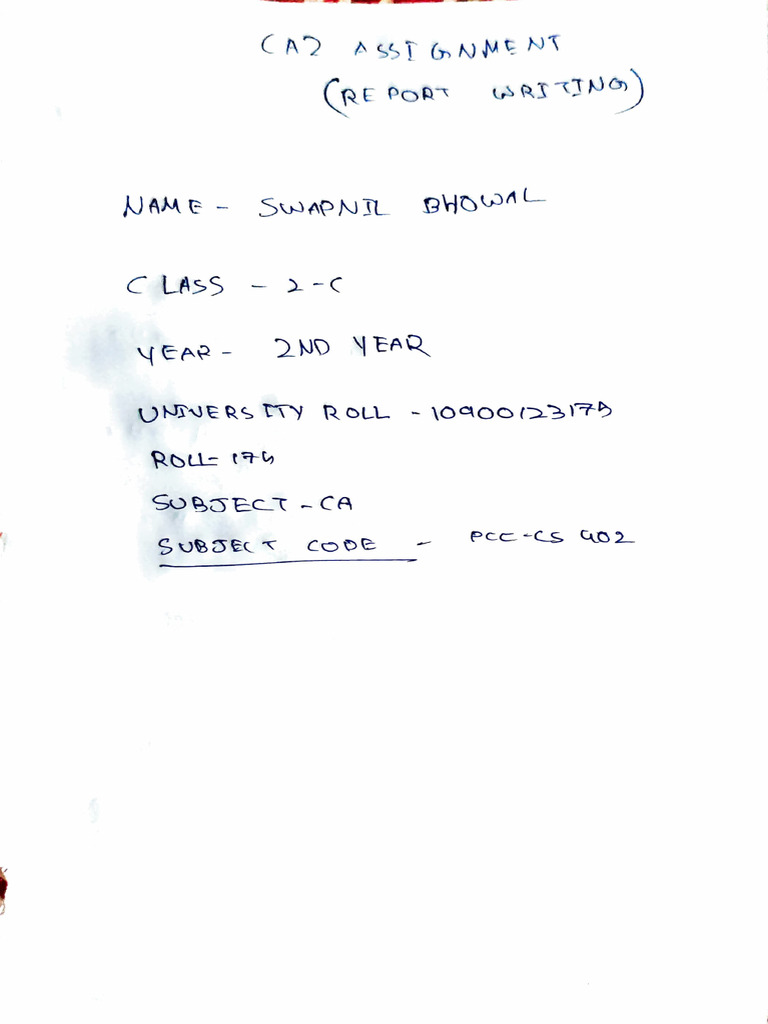 CA2 ASSIGNMENT
(REPORT WRITING)
NAME - SWAPNIL BHOWAL
CLASS - 2-C
YEAR - 2ND YEAR
UNIVERSITY ROLL - 10900123175
ROLL- 175
SUBJECT - CA
SUBJECT CODE - PCC-CS 402